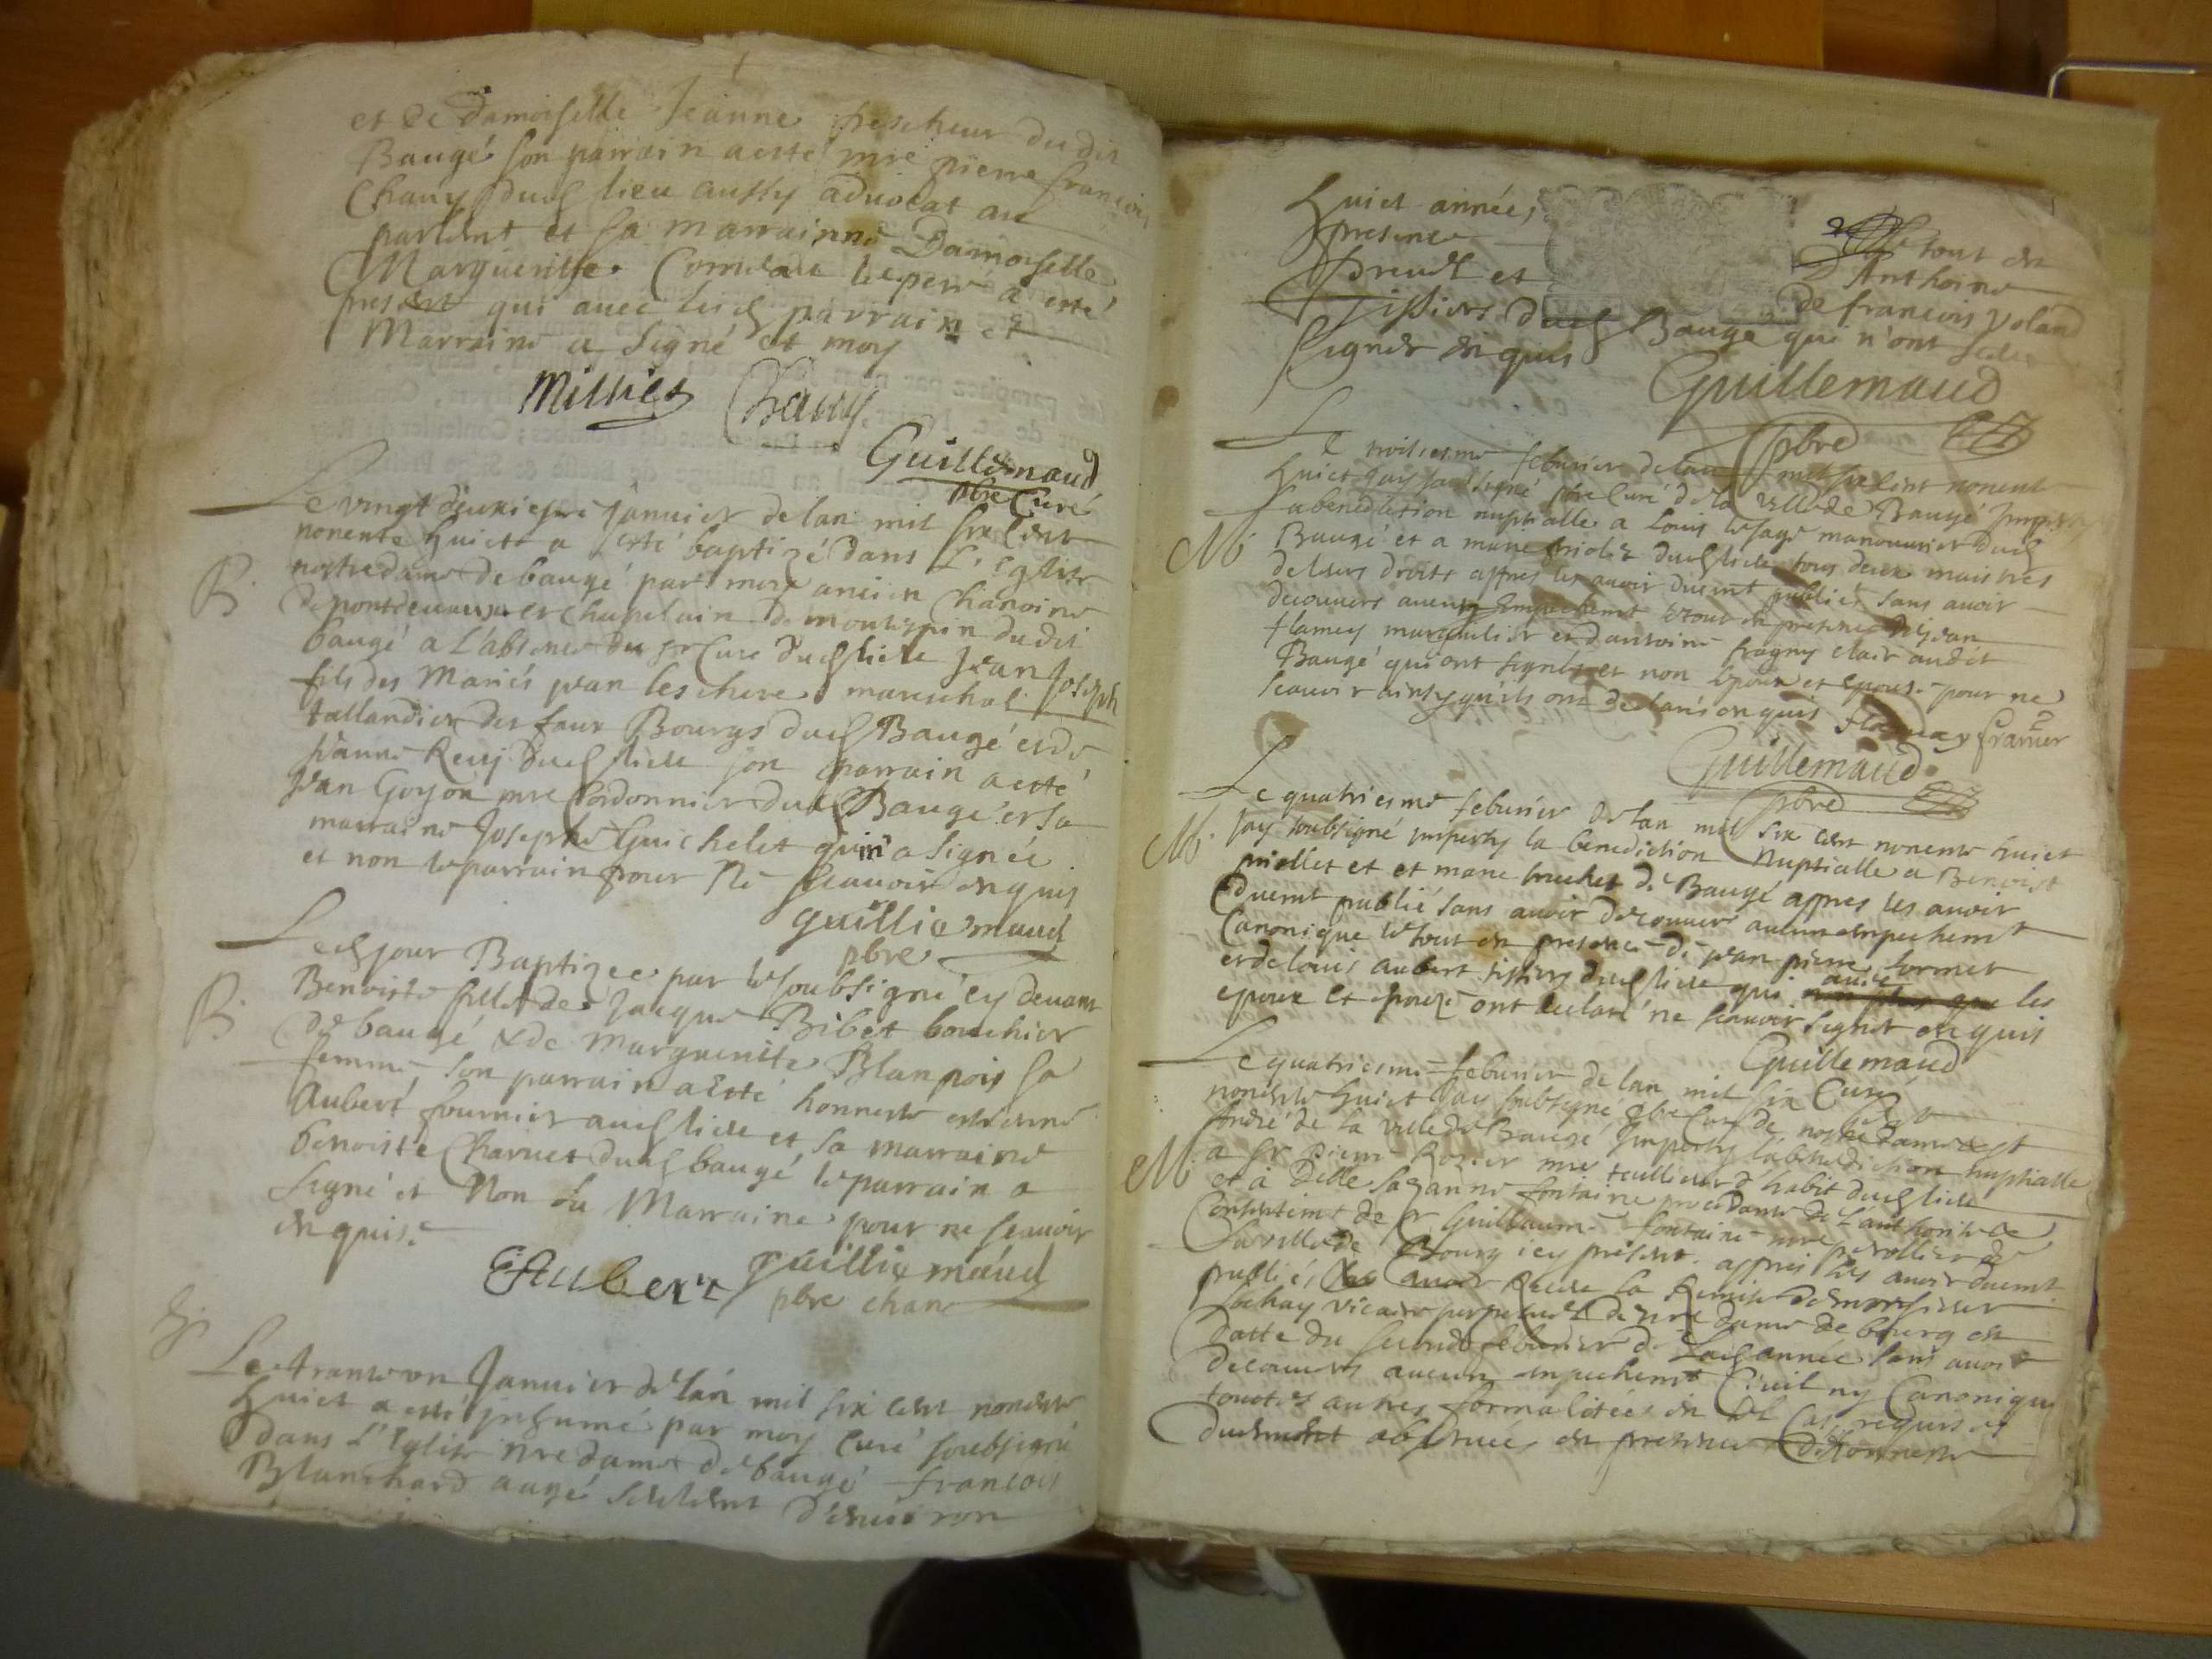 et de Damoiselle Jeanne frescheur dudit
Baugé son parrain a esté mre pierre francois
Chauy dud lieu aussy advocat au
parlent et sa marrainne Damoiselle
Margueritte le pere a esté
present qui avec lesd parrain et
Marraine a signé et moy
Millies Chauy
Guillemaud
pbre Curé
Le vingt deuxieme janvier de lan mil six cent
nonente huict a esté baptizé dans L'Eglise
nostre dame de baugé par more ancien Chanoine
de pontdevaux et Chapelain de dudit
baugé a L'absence du sr Curé dud lieu Jean Joseph
fils des Mariés jean leschere mareschal
taillandier des faux Bourgs dud Baugé et de
jeanne dud lieu son parrain a esté
jean Goyon mre Cordonnier dud Baugé et sa
marraine Josephe Guichelet qui n'a signée
et non le parrain pour ne scavoir enquis
guilliemaud
pbre
B.
Led jour Baptizee par le soubsigné cy devant
Benoiste fille de jacque Bibet bouchier
de baugé & de Margueritte Blanpois sa
femme son parrain a esté honneste estienne
Aubert fournier aud lieu et sa marraine
benoiste Charvet dud baugé le parrain a
signé et Non la Marraine pour ne scavoir
enquise
EAubert guilliemaud
pbre chan
Le trante un Janvier de lan mil six cent nonente
huict a esté inhumé par moy Curé soubsigné
dans L'Eglise nre dame de baugé francois
Blanchard augé seulement d'environ
huict années
presence
preud et
tissiers dud Baugé qui n'ont sceu
signer enquis
le tout en
Anthoine
de francois Voland
Guillemaud
pbre
Le troisiesme febvrier de lan mil six cent nonente
huict jay soubsigné pbre Curé de la ville de Baugé imparty
la benediction nuptialle a Louis lesage manouvrier dud
M.
Baugé et a marie friolet dud lieu tous deux maistres
de leurs droits appres les avoir duemt publiés sans avoir
decouvers aucung empechemt le tout en presence de jean
flamey marguilier et d'antoine fragny clair audit
Baugé qui ont signés et non lepoux et epouse pour ne
scavoir ainsy qu'ils ont declaré enquis
Guillemaud
pbre
Le quatriesme febvrier de lan mil six cent nonente huict
M.
jay soubsigné imparty la benediction Nuptialle a Benoist
miollet et et marie bruchet de Baugé appres les avoir
duemt publié sans avoir decouvert aulcun empechemt
Canonique le tout en presence de jean pierre tornier
et de louis aubert tissiers dud lieu qui avec les
epoux et epouze ont declaré ne scavoir signer enquis
Guillemaud
Curé
Le quatriesme febvrier de lan mil six cent
nonente huict jay soubsigné pbre Curé de nostre dame et
de la ville de Baugé imparty la benediction nuptialle
M.
a sr pierre Rozier mre tailleur d'habit dud lieu
et a Delle Sazanne fontaine procedante de l'authorité de
Consentemt de sr Guillaume fontaine mre
La ville de Bourg icy présent appres les avoir duemt
publiés avoir Receu la Remise de monsieur
Lochay vicaire perpetuel de nre dame de bourg en
datte du second febvrier de lad année sans avoir
decouvers aucung empechemt Civil ny Canonique
touttes autres formalitées en tel Cas requises
duement observées en presence d'honneste